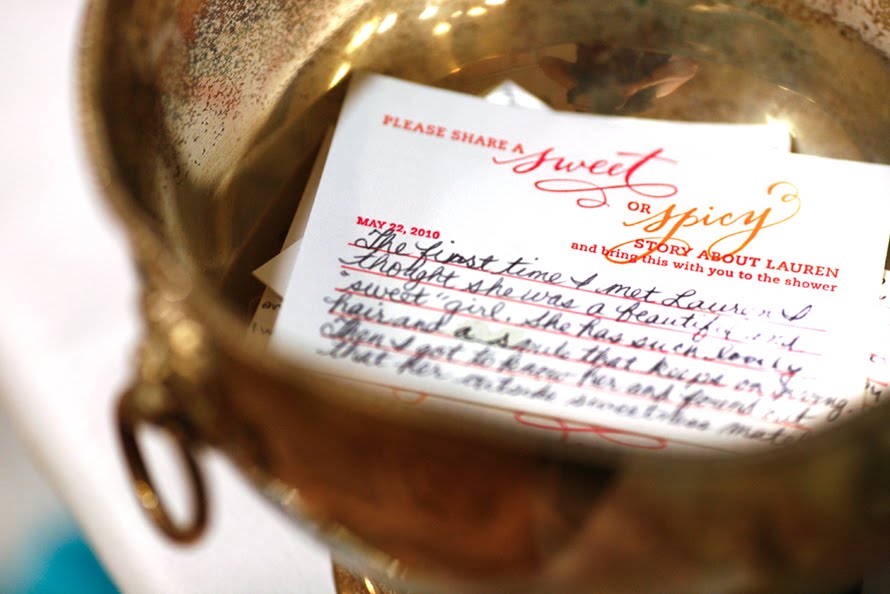 PLEASE SHARE A
sweet
OR
spicy
STORY ABOUT LAUREN
and bring this with you to the shower
MAY 22, 2010
The first time I met Lauren I
thought she was a beautiful and
"sweet" girl. She has such lovely
hair and a smile that keeps on giving.
Then I got to know her and found out
that her outside sweetness